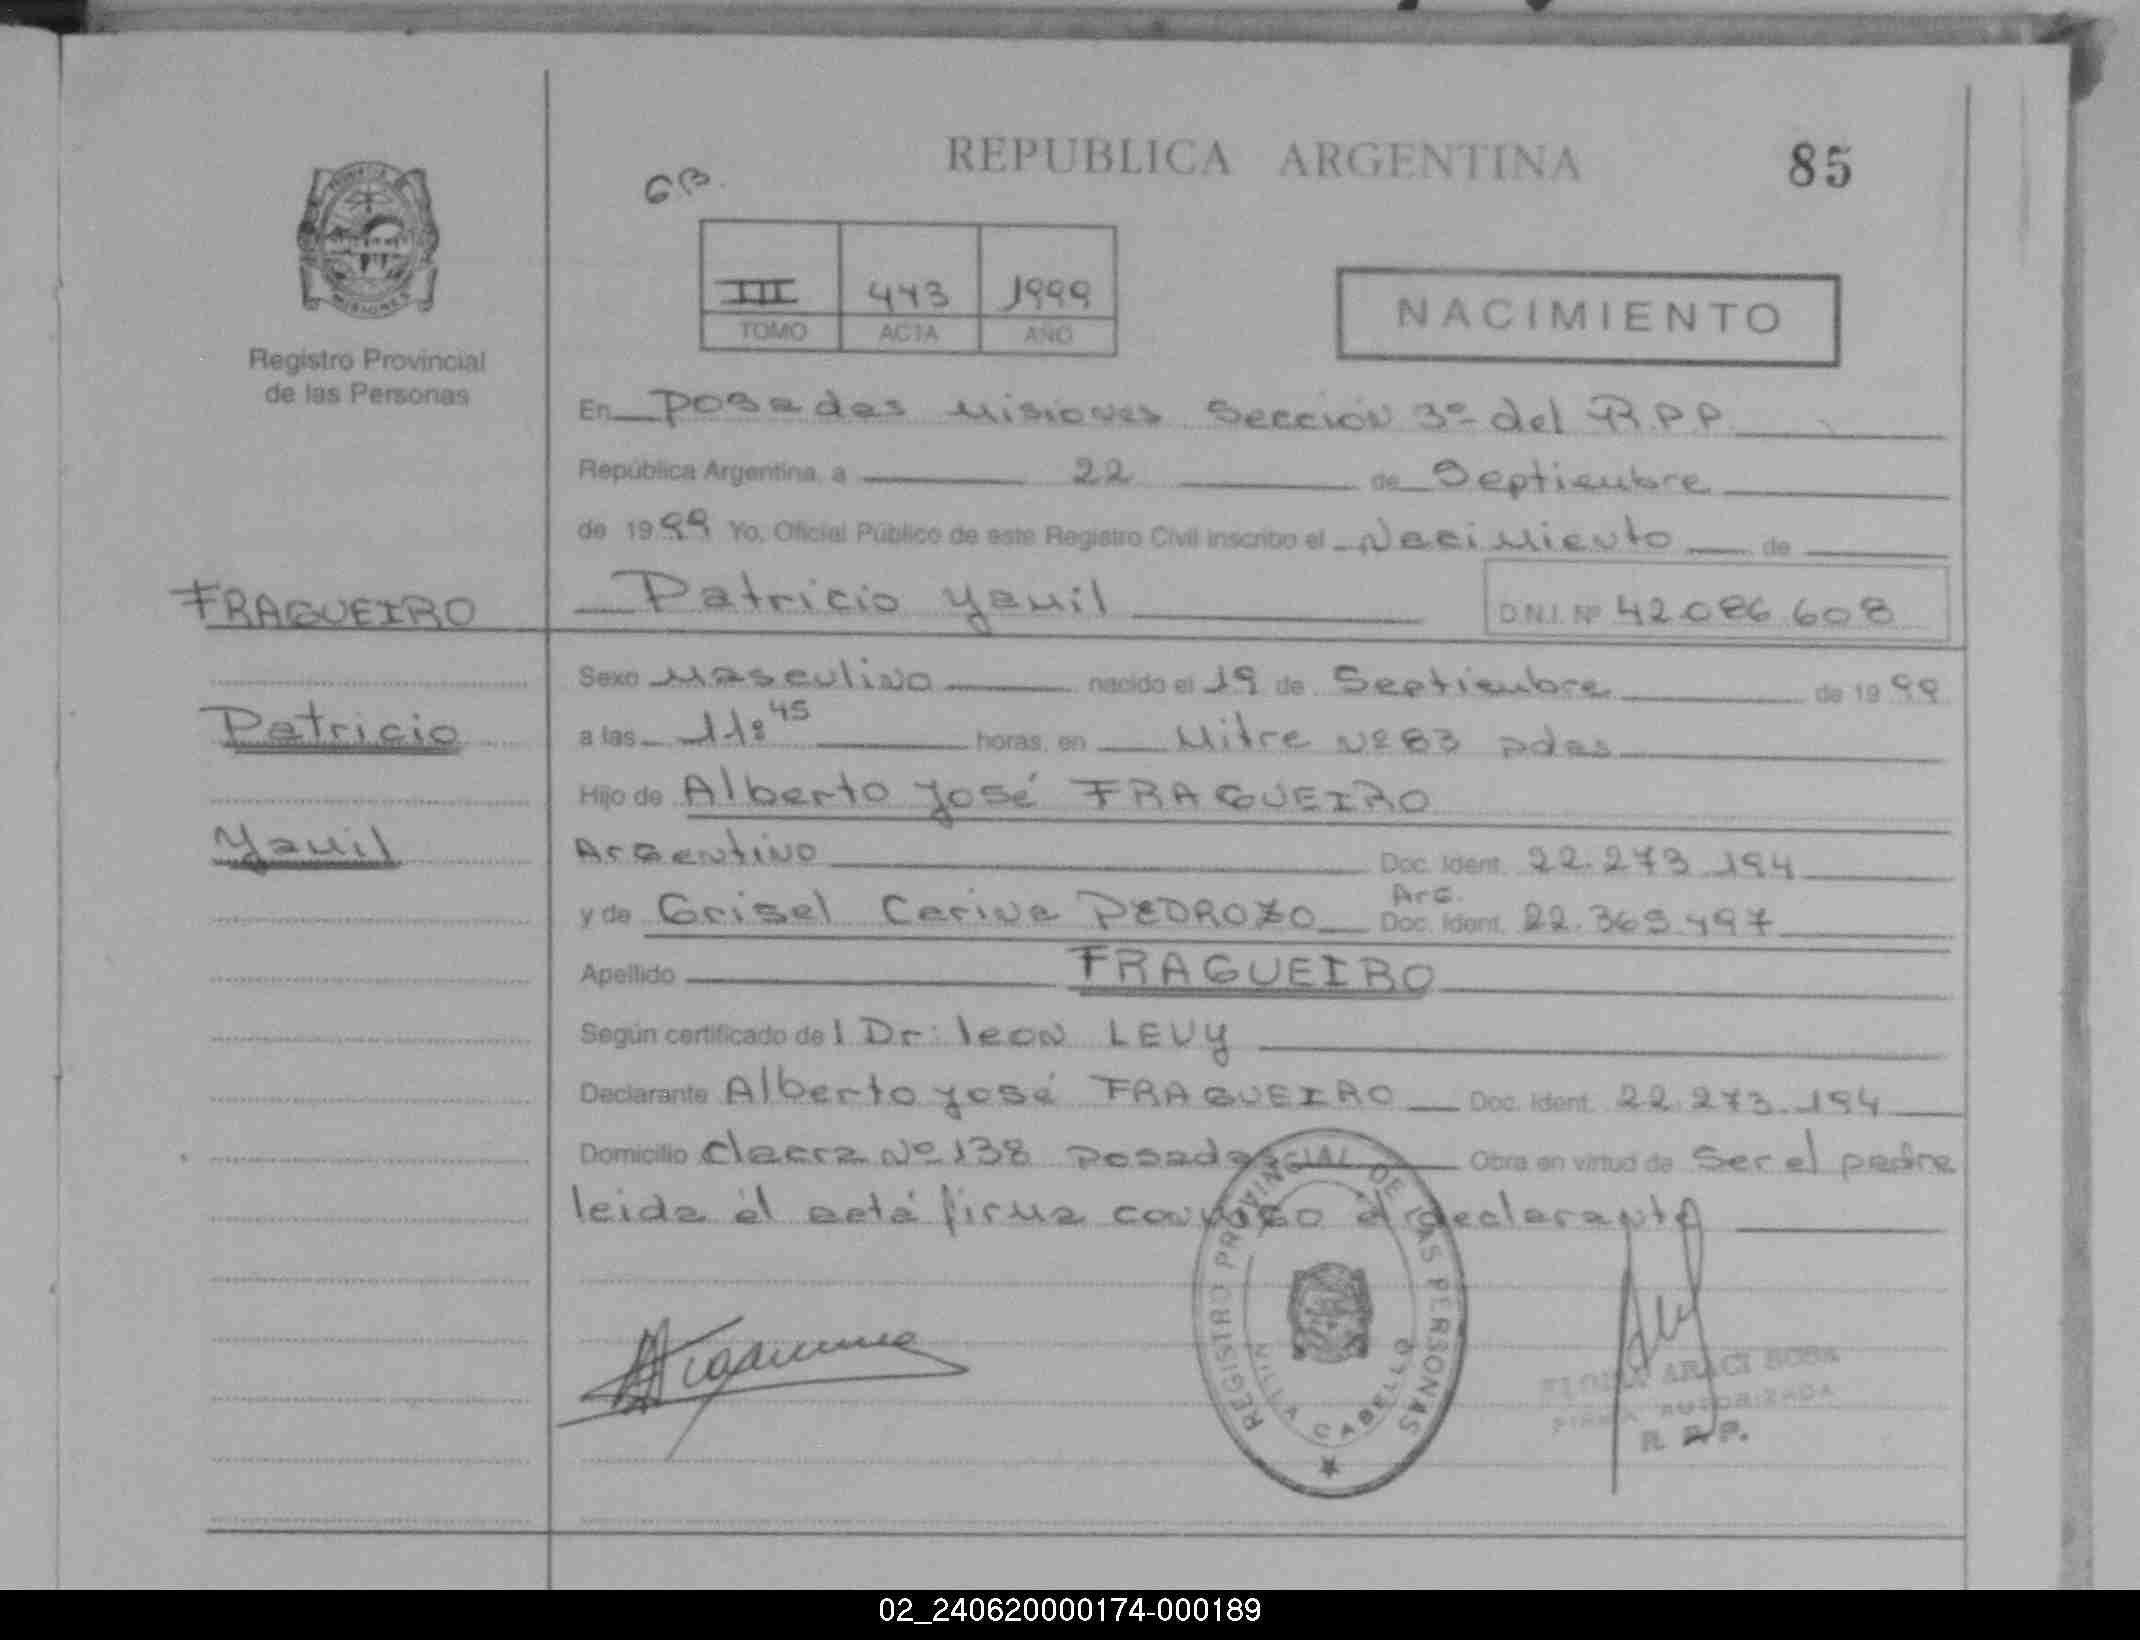 REPUBLICA ARGENTINA
85
GB.
III 443 1999
TOMO ACTA AÑO
NACIMIENTO
Registro Provincial
de las Personas
En Posadas Misiones Sección 3º del R.P.P.
República Argentina, a 22 de Septiembre
de 1999 Yo, Oficial Público de este Registro Civil inscribo el Nacimiento de
FRAGUEIRO
Patricio Yamil
Patricio Yamil D.N.I. Nº 42.086.608
Sexo Masculino nacido el 19 de Septiembre de 1999
a las 11:45 horas, en Mitre Nº 83 pdas
Hijo de Alberto José FRAGUEIRO
Argentino Doc. Ident. 22.273.194
Arg.
y de Grisel Carina PEDROZO Doc. Ident. 22.369.497
Apellido FRAGUEIRO
Según certificado de l Dr: leon LEVY
Declarante Alberto José FRAGUEIRO Doc. Ident. 22.273.194
Domicilio Chacra Nº 138 Posadas Obra en virtud de Ser el padre
leida el acta firma conmigo el declarante
REGISTRO PROVINCIAL DE LAS PERSONAS
VILLA CABELLO
ARACI SOSA
FIRMA AUTORIZADA
R. P. P.
02_240620000174-000189